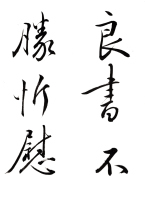 良書不
勝忻慰